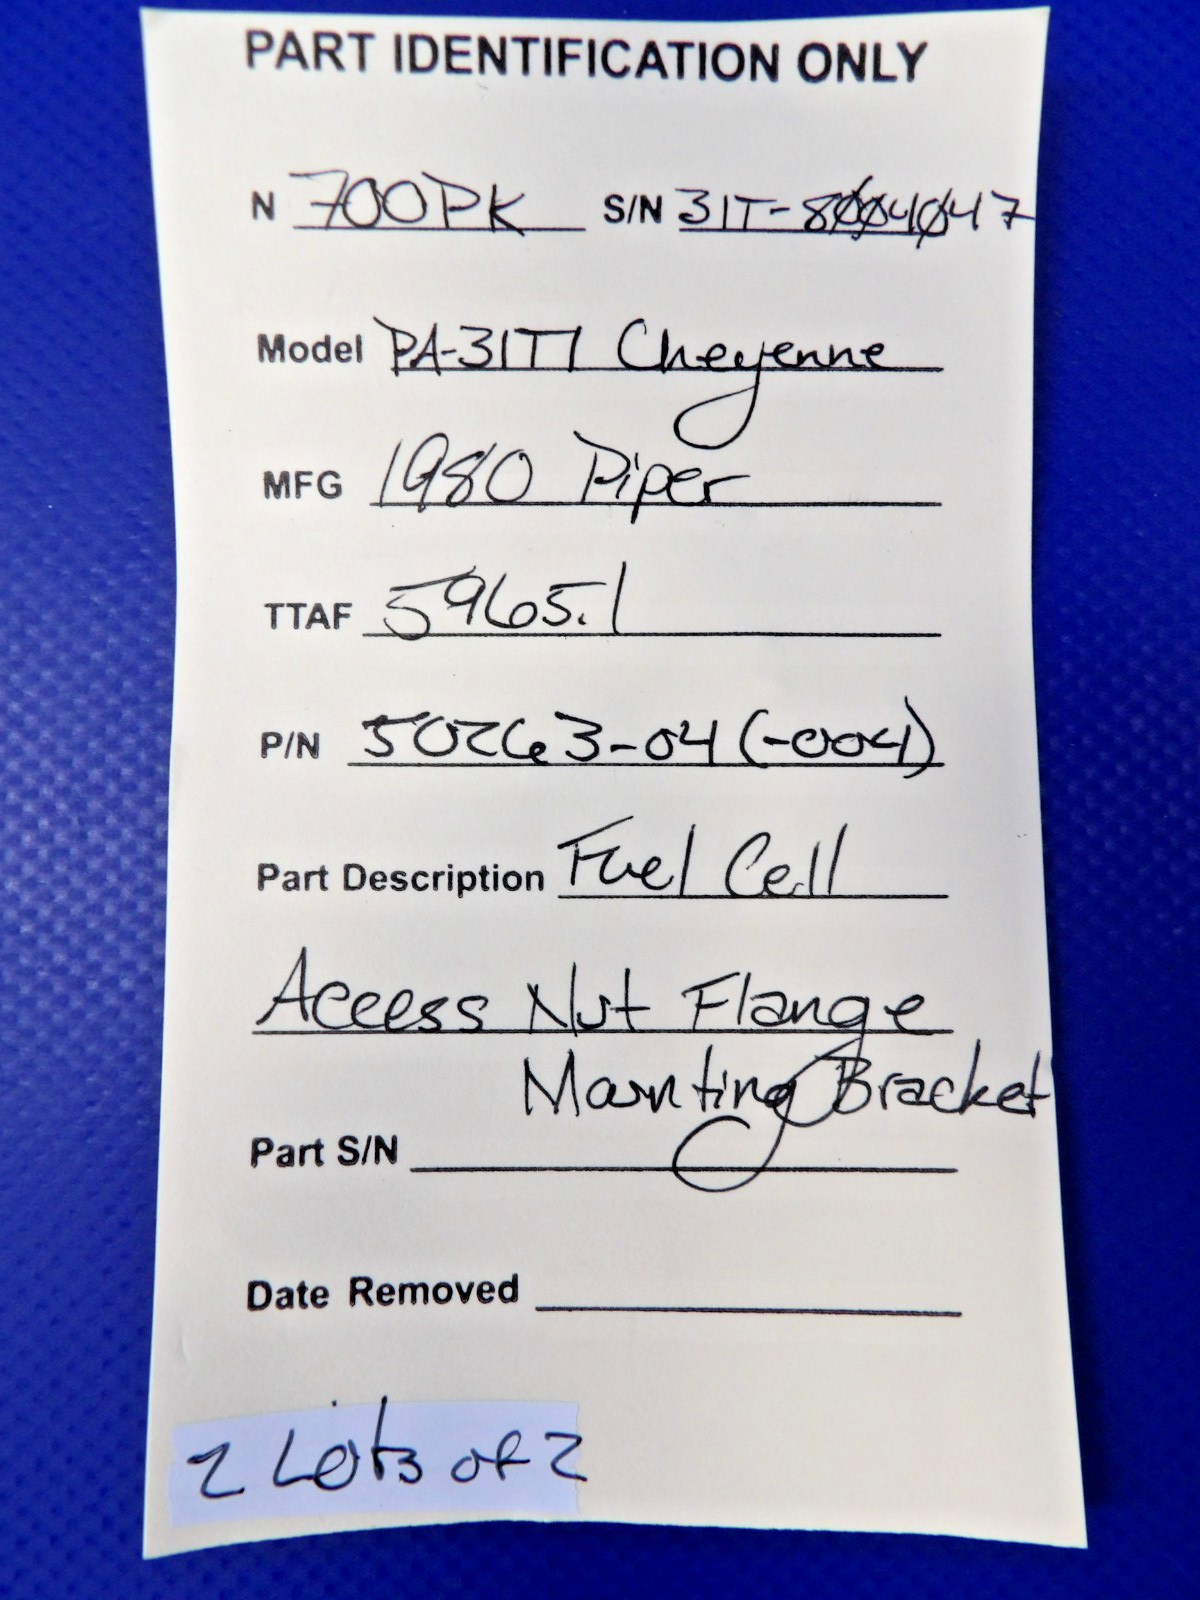 PART IDENTIFICATION ONLY
N 700PK S/N 31T-8004047
Model PA-31T1 Cheyenne
MFG 1980 Piper
TTAF 5965.1
P/N 50263-04 (-004)
Part Description Fuel Cell
Access Nut Flange
Mounting Bracket
Part S/N
Date Removed
2 Lots of 2